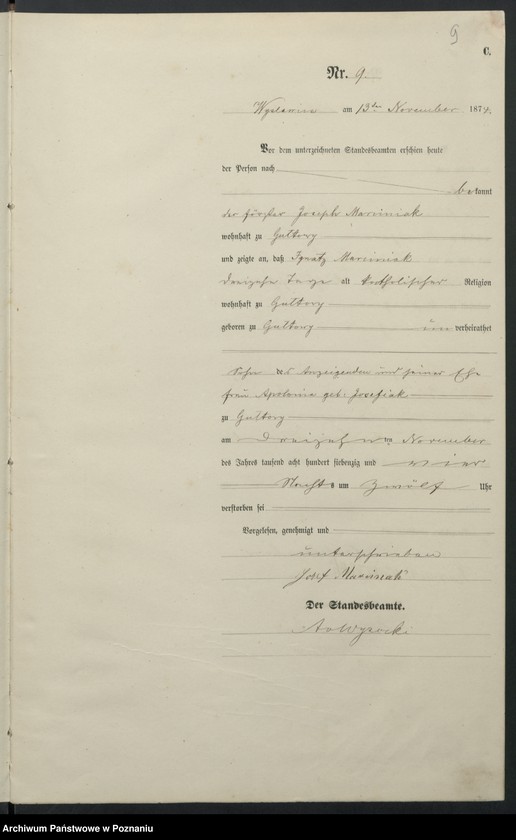 9
C.
Nr. 9
am 13ten November 1874.
Vor dem unterzeichneten Standesbeamten erschien heute
der Person nach
bekannt
der Förster Joseph Marciniak
wohnhaft zu Guttowy
und zeigte an, daß Ignatz Marciniak
Dreizehn Tage alt katholischer Religion
wohnhaft zu Guttowy
geboren zu Guttowy unverheirathet
Sohn des Anzeigenden und seiner Ehe
frau Apolonia geb: Josefiak
zu Guttowy
am Dreizehnten November
des Jahres tausend acht hundert siebenzig und vier
Nachts um Zwölf Uhr
verstorben sei
Vorgelesen, genehmigt und
unterschrieben
Josef Marciniak
Der Standesbeamte.
Archiwum Państwowe w Poznaniu